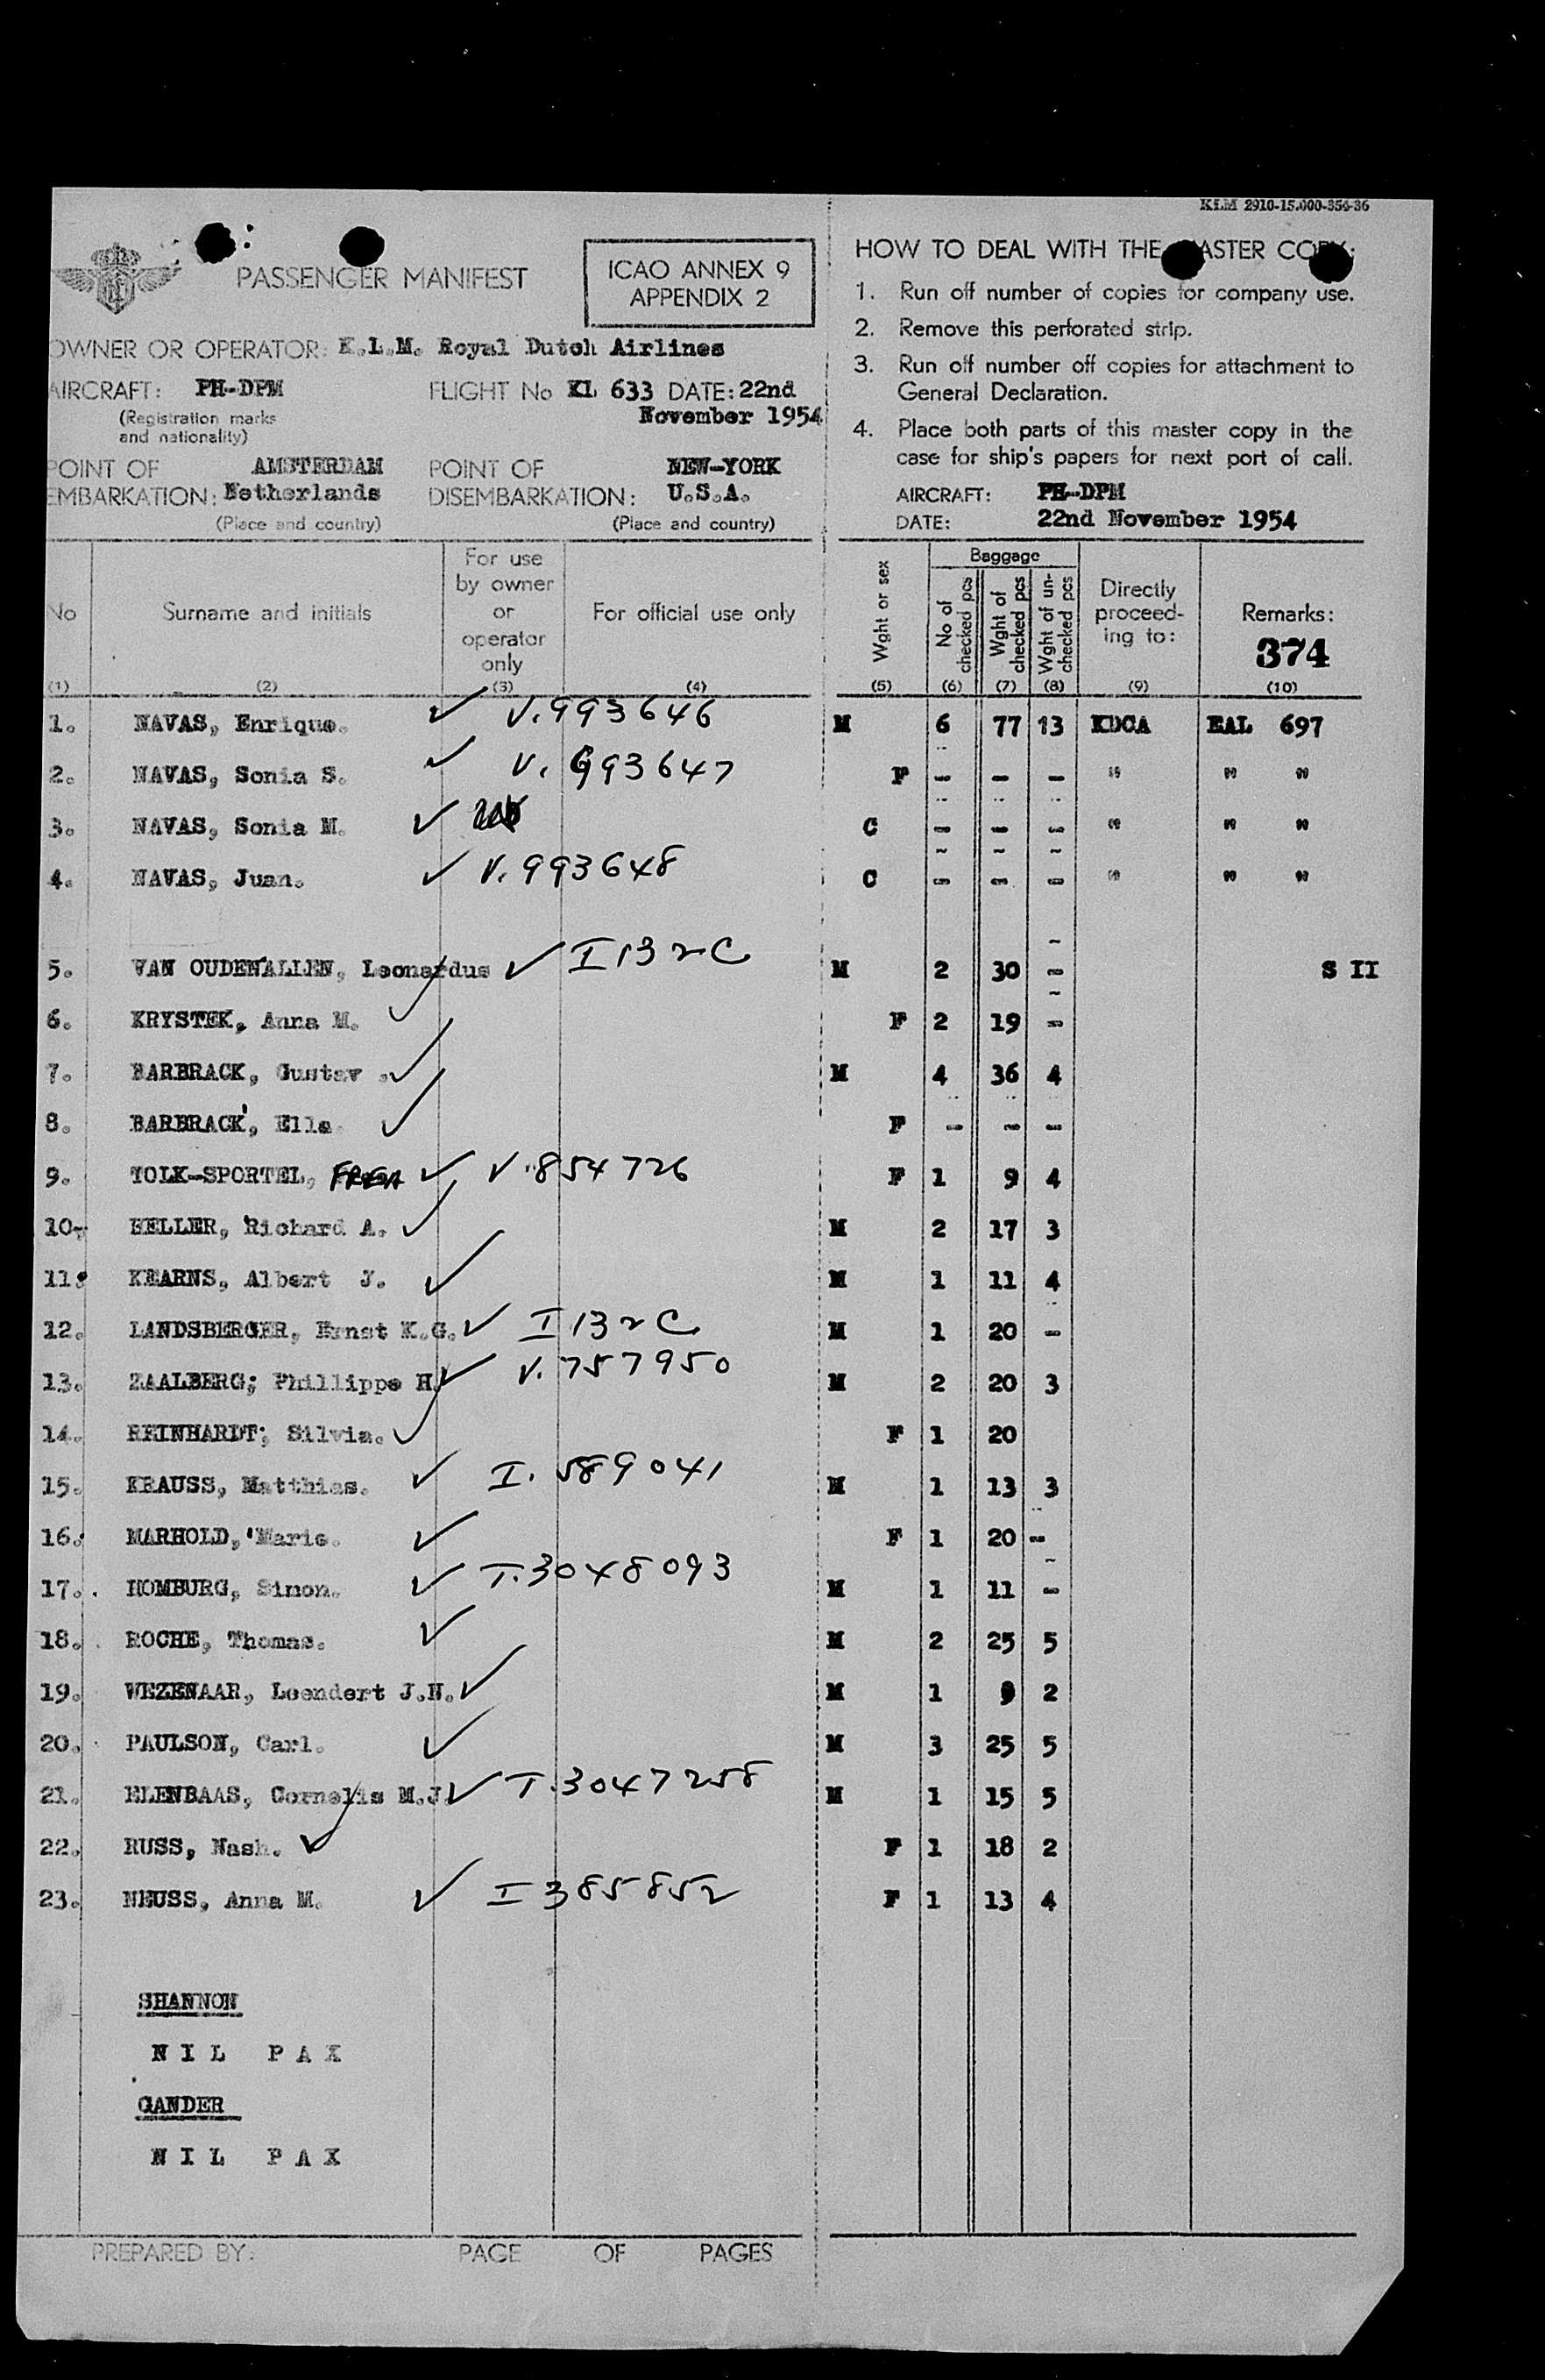 KLM 2910-15.000-354-36
PASSENGER MANIFEST
ICAO ANNEX 9
APPENDIX 2
OWNER OR OPERATOR: K.L.M. Royal Dutch Airlines
AIRCRAFT: PH-DPM FLIGHT No KL 633 DATE: 22nd
(Registration marks November 1954
and nationality)
POINT OF AMSTERDAM POINT OF NEW-YORK
EMBARKATION: Netherlands DISEMBARKATION: U.S.A.
(Place and country) (Place and country)
HOW TO DEAL WITH THE MASTER COPY:
1. Run off number of copies for company use.
2. Remove this perforated strip.
3. Run off number off copies for attachment to
General Declaration.
4. Place both parts of this master copy in the
case for ship's papers for next port of call.
AIRCRAFT: PH-DPM
DATE: 22nd November 1954
No Surname and initials For use by owner or operator only For official use only Wght or sex Baggage No of checked pcs Wght of checked pcs Wght of un-checked pcs Directly proceed-ing to: Remarks: 374
(1) (2) (3) (4) (5) (6) (7) (8) (9) (10)
1. NAVAS, Enrique. ✓ V.993646 M 6 77 13 KDCA EAL 697
2. NAVAS, Sonia S. ✓ V.993647 F - - - " " "
3. NAVAS, Sonia M. ✓ C - - - " " "
4. NAVAS, Juan. ✓ V.993648 C - - - " " "
5. VAN OUDENALLEN, Leonardus ✓ I 132C M 2 30 - S II
6. KRYSTEK, Anna M. ✓ F 2 19 -
7. BARBRACK, Gustav . ✓ M 4 36 4
8. BARBRACK, Ella ✓ F - - -
9. TOLK-SPORTEL, ✓ V.854726 F 1 9 4
10. HELLER, Richard A. ✓ M 2 17 3
11. KEARNS, Albert J. ✓ M 1 11 4
12. LANDSBERGER, Ernst K.G. ✓ I 132C M 1 20 -
13. ZAALBERG; Phillippe H. ✓ V.757950 M 2 20 3
14. REINHARDT; Silvia. ✓ F 1 20
15. KRAUSS, Matthias. ✓ I. 589041 M 1 13 3
16. MARHOLD, Marie. ✓ F 1 20 -
17. HOMBURG, Simon. ✓ T.3048093 M 1 11 -
18. ROCHE, Thomas. ✓ M 2 25 5
19. WEZENAAR, Leendert J.H. ✓ M 1 9 2
20. PAULSON, Carl. ✓ M 3 25 5
21. ELENBAAS, Cornelis M.J. ✓ T.3047258 M 1 15 5
22. RUSS, Nash. ✓ F 1 18 2
23. NEUSS, Anna M. ✓ I 385852 F 1 13 4
SHANNON
NIL PAX
GANDER
NIL PAX
PREPARED BY: PAGE OF PAGES